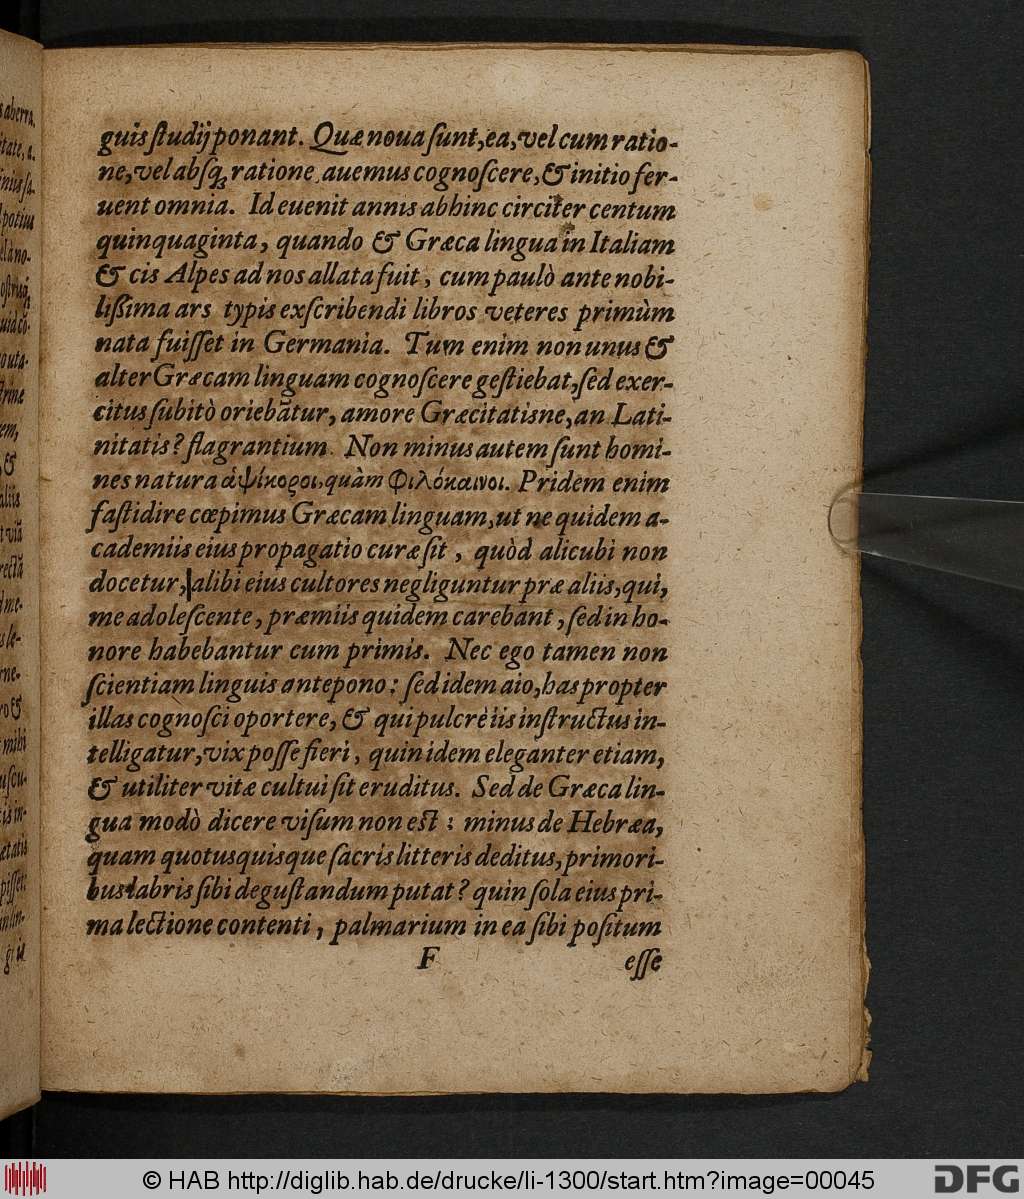 guis ſtudij ponant. Quæ noua ſunt, ea, vel cum ratio-
ne, vel abſq; ratione, auemus cognoſcere, & initio fer-
uent omnia. Id euenit annis abhinc circiter centum
quinquaginta, quando & Græca lingua in Italiam
& cis Alpes ad nos allata fuit, cum paulò ante nobi-
lißima ars typis exſcribendi libros veteres primùm
nata fuiſſet in Germania. Tum enim non unus &
alter Græcam linguam cognoſcere geſtiebat, ſed exer-
citus ſubitò oriebatur, amore Græcitatisne, an Lati-
nitatis? flagrantium. Non minus autem ſunt homi-
nes natura ἁψίκοροι, quàm Φιλόκαινοι. Pridem enim
faſtidire cœpimus Græcam linguam, ut ne quidem a-
cademiis eius propagatio curæ ſit, quòd alicubi non
docetur, alibi eius cultores negliguntur præ aliis, qui,
me adoleſcente, præmiis quidem carebant, ſed in ho-
nore habebantur cum primis. Nec ego tamen non
ſcientiam linguis antepono: ſed idem aio, has propter
illas cognoſci oportere, & qui pulcrè iis inſtructus in-
telligatur, vix poſſe fieri, quin idem eleganter etiam,
& utiliter vitæ cultui ſit eruditus. Sed de Græca lin-
gua modò dicere viſum non eſt: minus de Hebræa,
quam quotusquisque ſacris litteris deditus, primori-
bus labris ſibi deguſtandum putat? quin ſola eius pri-
ma lectione contenti, palmarium in ea ſibi poſitum
F eſſe
© HAB http://diglib.hab.de/drucke/li-1300/start.htm?image=00045
DFG